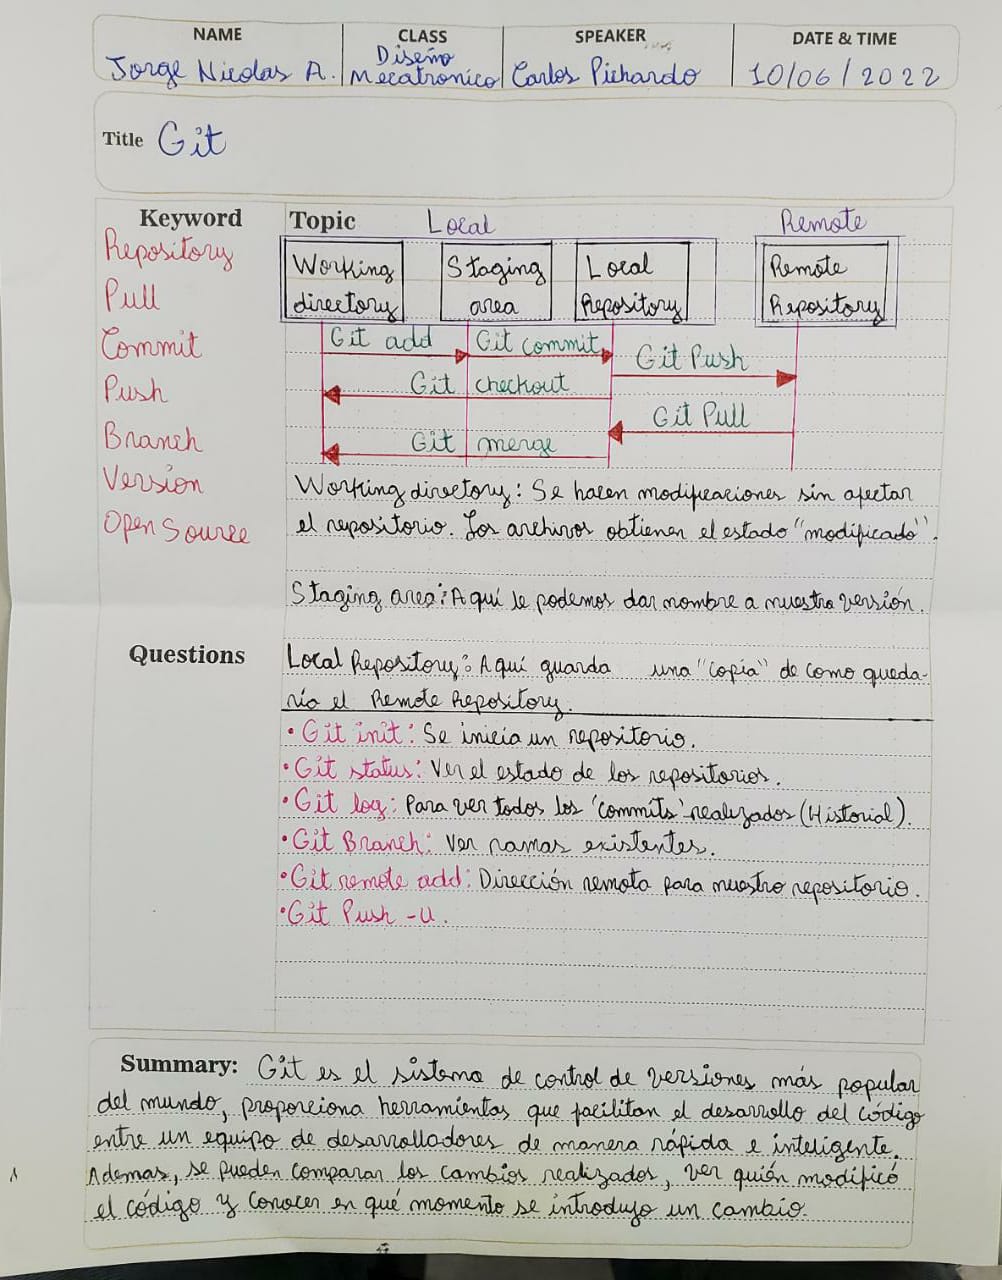 NAME CLASS SPEAKER DATE & TIME
Jorge Nicolas A. Diseño Mecatronico Carlos Pichardo 10/06/2022
Title Git
Keyword Topic Local Remote
Repository
Pull
Commit
Push
Branch
Version
Open Source
Working directory
Staging area
Local Repository
Remote Repository
Git add Git commit
Git Push
Git checkout
Git Pull
Git merge
Working directory: Se hacen modificaciones sin afectar
el repositorio. Los archivos obtienen el estado "modificado".
Staging area: Aquí le podemos dar nombre a nuestra versión.
Questions
Local Repository: Aquí guarda una "copia" de como queda-
ría el Remote Repository.
• Git init: Se inicia un repositorio.
• Git status: Ver el estado de los repositorios.
• Git log: Para ver todos los 'commits' realizados (Historial).
• Git Branch: Ver ramas existentes.
• Git remote add: Dirección remota para nuestro repositorio.
• Git Push -u.
Summary: Git es el sistema de control de versiones más popular
del mundo, proporciona herramientas que facilitan el desarrollo del código
entre un equipo de desarrolladores de manera rápida e inteligente.
Ademas, se pueden comparar los cambios realizados, ver quién modificó
el código y conocer en qué momento se introdujo un cambio.